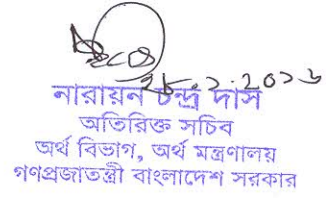 নারায়ন চন্দ্র দাস
অতিরিক্ত সচিব
অর্থ বিভাগ, অর্থ মন্ত্রণালয়
গণপ্রজাতন্ত্রী বাংলাদেশ সরকার